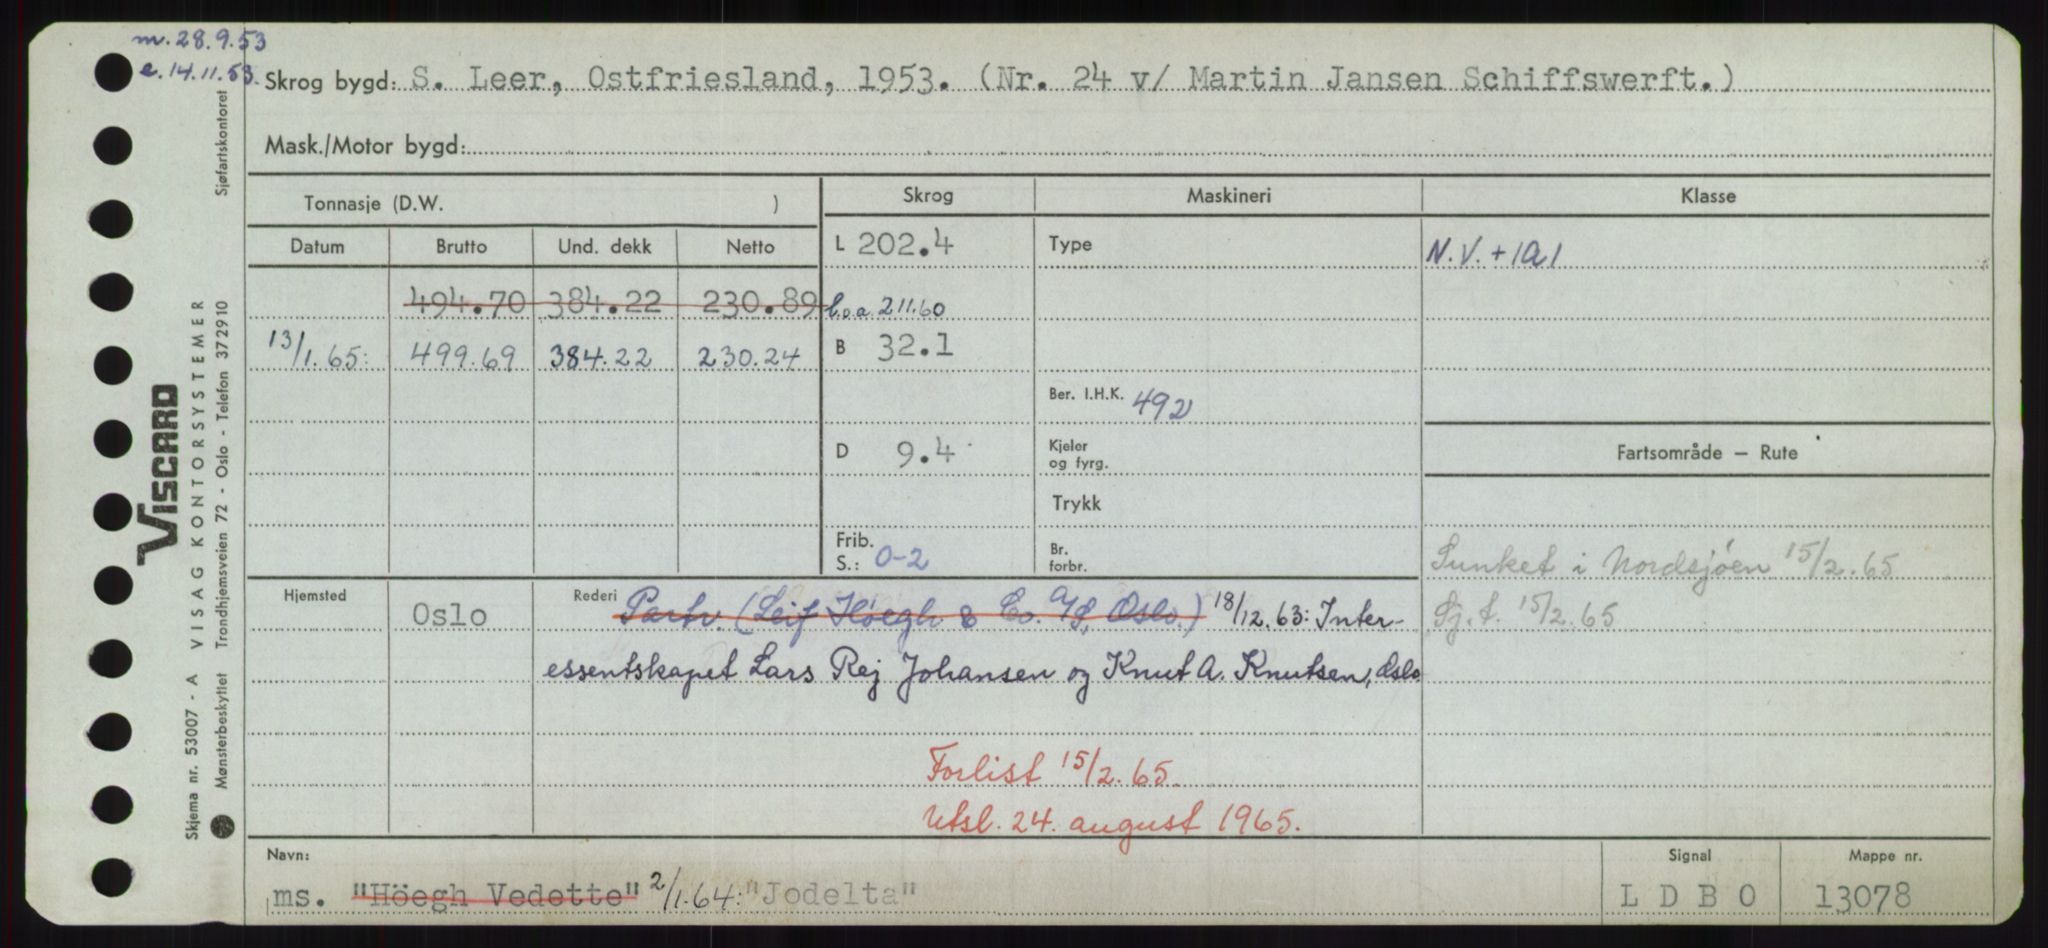 m. 28.9.53
e. 14.11.53.
Skrog bygd: S. Leer, Ostfriesland, 1953. (Nr. 24 v/ Martin Jansen Schiffswerft.)
Mask./Motor bygd:
Tonnasje (D.W. )
Skrog Maskineri Klasse
Datum Brutto Und. dekk Netto
L 202.4 Type N.V. + 1A1
494.70 384.22 230.89 l.o.a. 211.60
13/1.65: 499.69 384.22 230.24 B 32.1
Ber. I.H.K. 492
D 9.4 Kjeler og fyrg. Fartsområde — Rute
Trykk
Frib. S.: 0-2 Br. forbr. Sunket i Nordsjøen 15/2.65
Hjemsted Oslo Rederi Partr. (Leif Höegh & Co. A/S, Oslo.) 18/12.63: Inter- Sj.t. 15/2.65
essentskapet Lars Rej Johansen og Knut A. Knutsen, Oslo
Forlist 15/2.65.
Utsl. 24. august 1965.
Navn: Signal Mappe nr.
ms. "Höegh Vedette" 2/1.64: "Jodelta" L D B O 13078
VISCARD
VISAG KONTORSYSTEMER Sjøfartskontoret
Skjema nr. 53007 - A
Mønsterbeskyttet Trondhjemsveien 72 - Oslo - Telefon 372910